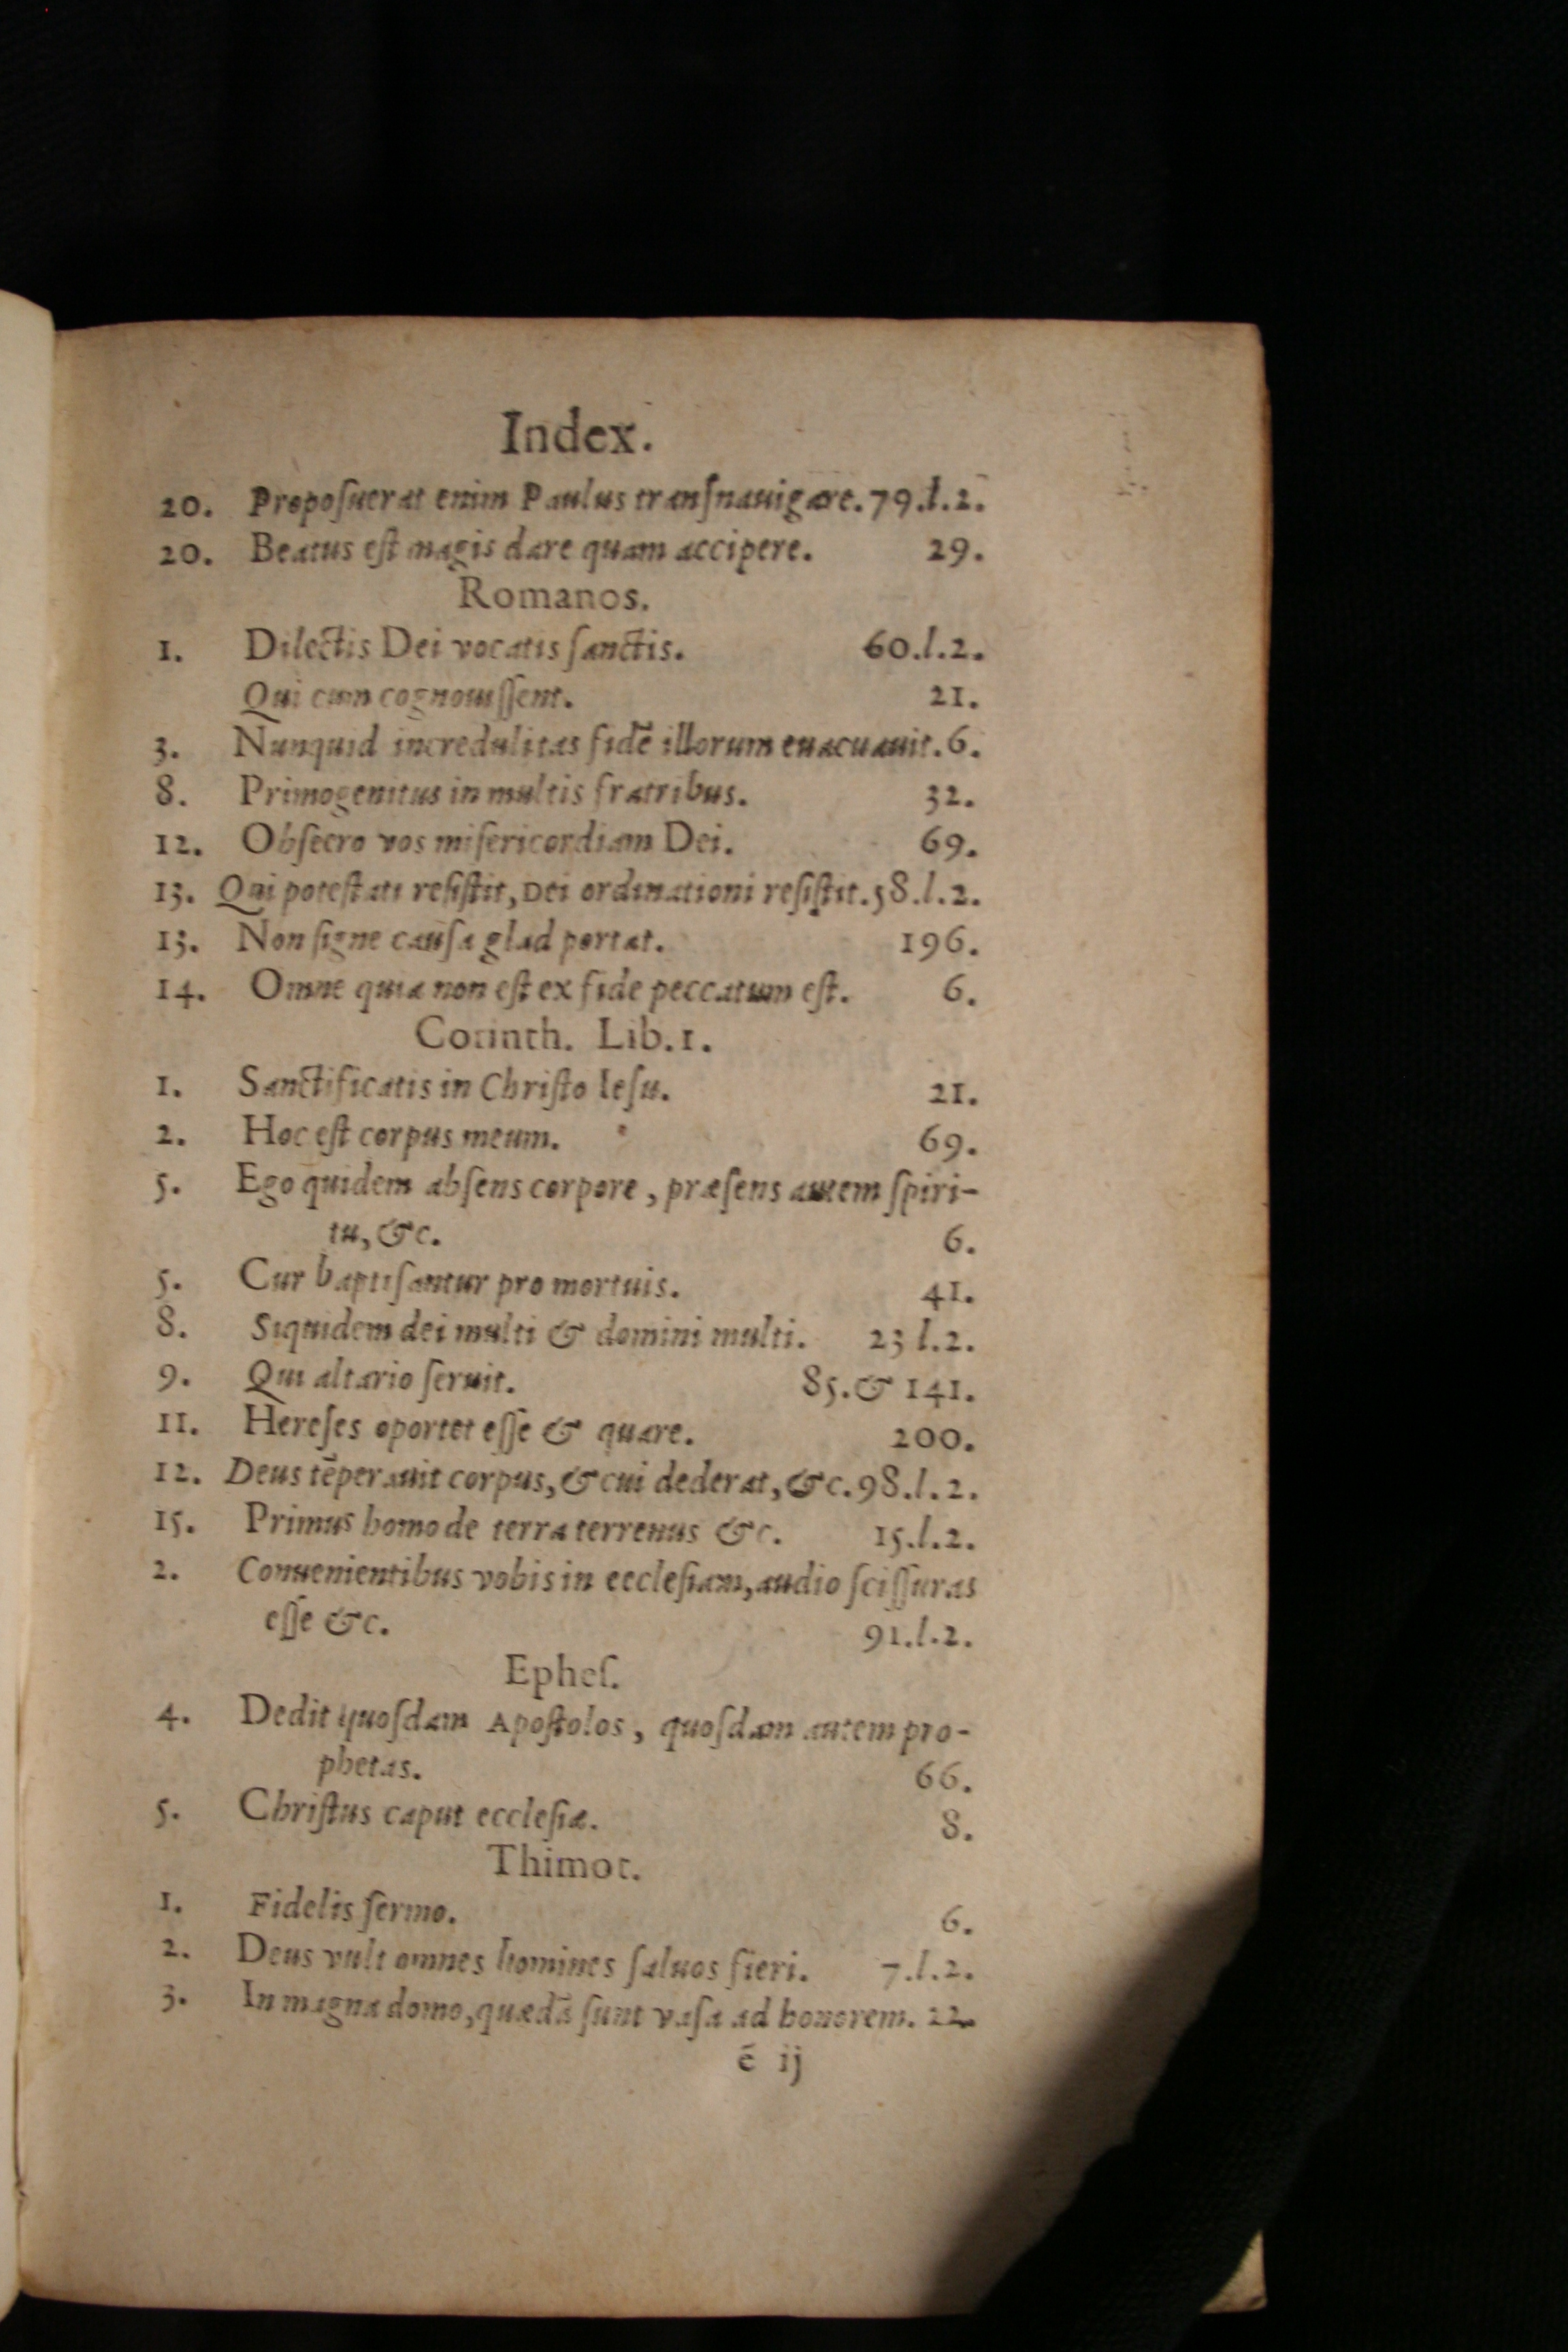 Index.
20. Propoſuerat enim Paulus tranſnauigare. 79.l.2.
20. Beatus eſt magis dare quam accipere. 29.
Romanos.
1. Dilectis Dei vocatis ſanctis. 60.l.2.
Qui cum cognouiſſent. 21.
3. Nunquid incredulitas fidē illorum euacuauit. 6.
8. Primogenitus in multis fratribus. 32.
12. Obſecro vos miſericordiam Dei. 69.
13. Qui poteſtati reſiſtit, Dei ordinationi reſiſtit. 58.l.2.
13. Non ſigne cauſa glad portat. 196.
14. Omne quia non eſt ex fide peccatum eſt. 6.
Corinth. Lib. 1.
1. Sanctificatis in Chriſto Ieſu. 21.
2. Hoc eſt corpus meum. 69.
5. Ego quidem abſens corpore, præſens autem ſpiri-
tu, &c. 6.
5. Cur baptiſantur pro mortuis. 41.
8. Siquidem dei multi & domini multi. 23 l.2.
9. Qui altario ſeruit. 85. & 141.
11. Hereſes oportet eſſe & quare. 200.
12. Deus tēperauit corpus, & cui dederat, &c. 98.l.2.
15. Primus homo de terra terrenus &c. 15.l.2.
2. Conuenientibus vobis in eccleſiam, audio ſciſſuras
eſſe &c. 91.l.2.
Epheſ.
4. Dedit quoſdam Apoſtolos, quoſdam autem pro-
phetas. 66.
5. Chriſtus caput eccleſiæ. 8.
Thimot.
1. Fidelis ſermo. 6.
2. Deus vult omnes homines ſaluos fieri. 7.l.2.
3. In magna domo, quædā ſunt vaſa ad honorem. 22.
ē ij